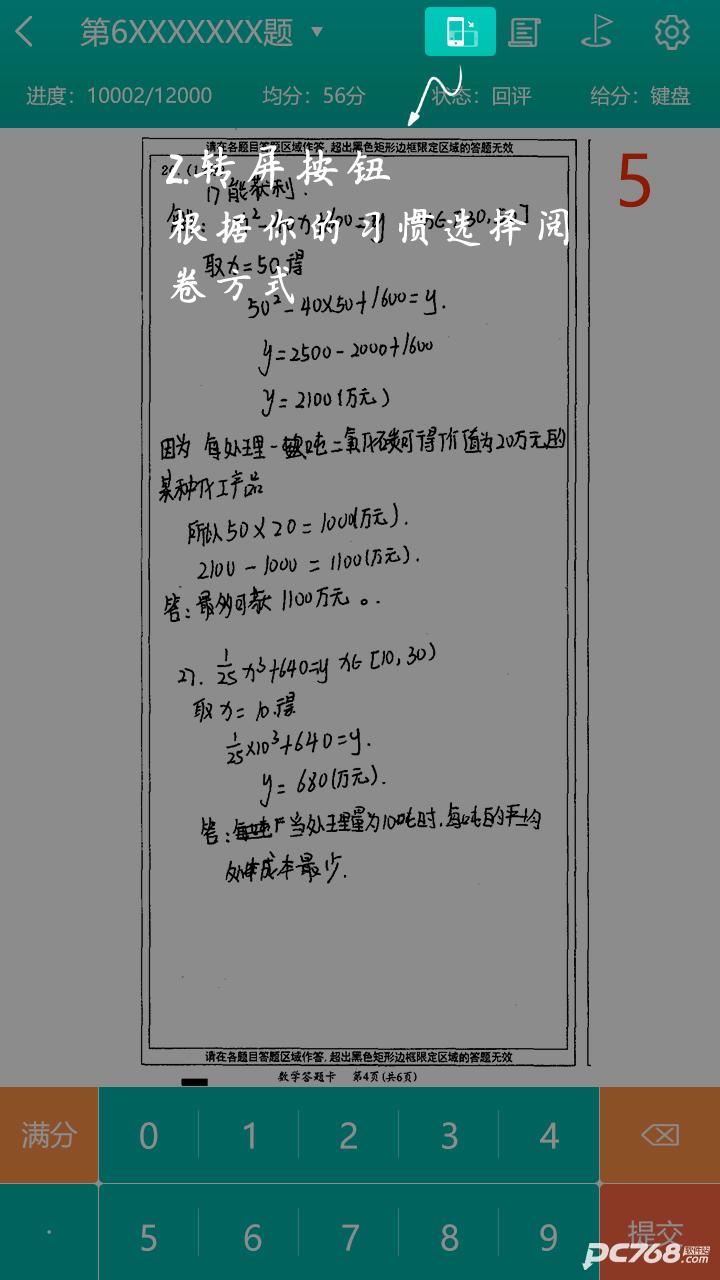 第6XXXXXXX题
进度：10002/12000 均分：56分 状态：回评 给分：键盘
请在各题目答题区域作答，超出黑色矩形边框限定区域的答题无效
5
2.转屏按钮
根据你的习惯选择阅
卷方式
能获利．
取x=50得
50²-40×50+1600=y.
y=2500-2000+1600
y=2100(万元)
因为 每处理一吨二氧化碳可得价值为20万元的
某种化工产品
所以50×20=1000(万元).
2100-1000=1100(万元).
答：最多可获1100万元。.
27. 1/25 x³+640=y x∈[10,30)
取x=10.得
1/25×10³+640=y.
y=680(万元).
答：当处理量为10吨时，每吨的平均
处理成本最少.
请在各题目答题区域作答，超出黑色矩形边框限定区域的答题无效
数学答题卡 第4页(共6页)
满分 0 1 2 3 4
· 5 6 7 8 9 提交
PC768软件站.com